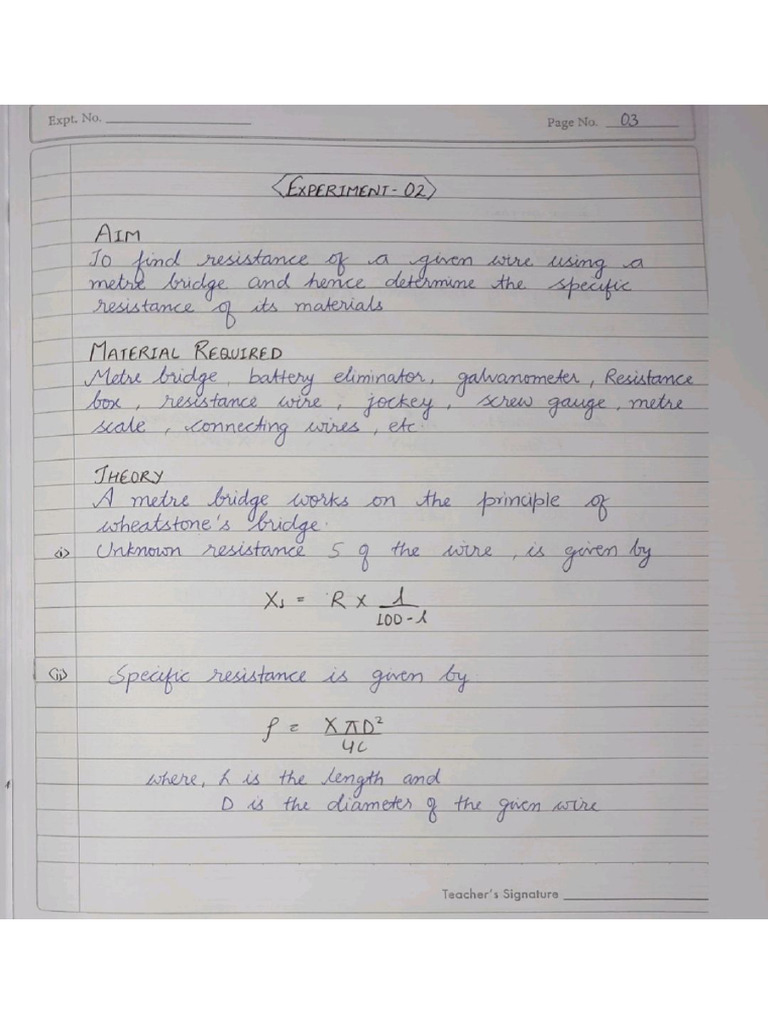 Expt. No.
Page No. 03
EXPERIMENT-02
AIM
To find resistance of a given wire using a
metre bridge and hence determine the specific
resistance of its materials
MATERIAL REQUIRED
Metre bridge, battery eliminator, galvanometer, Resistance
box, resistance wire, jockey, screw gauge, metre
scale, connecting wires, etc.
THEORY
A metre bridge works on the principle of
wheatstone's bridge.
(i) Unknown resistance S of the wire, is given by
X₁ = R × l / (100-l)
(ii) Specific resistance is given by
ρ = XπD² / 4L
where, L is the length and
D is the diameter of the given wire
Teacher's Signature